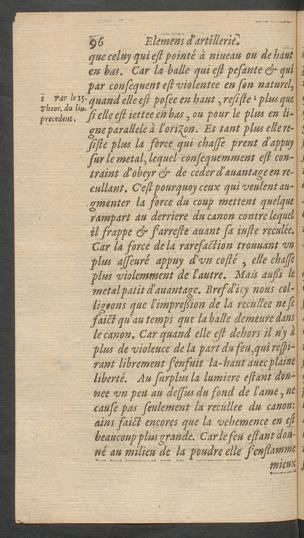 96 Elemens d'artillerie.
que celuy qui est pointé à niueau ou de haut
en bas. Car la balle qui est pesante & qui
par consequent est violentee en son naturel,
1 Par le 15. quand elle est posee en haut, resiste 1 plus que
Theor. du liu. si elle est iettee en bas, ou pour le plus en li-
precedent. gne parallele à l'orizon. Et tant plus elle re-
siste plus la force qui chasse prent d'appuy
sur le metal, lequel consequemment est con-
traint d'obeyr & de ceder d'auantage en re-
cullant. C'est pourquoy ceux qui veulent au-
gmenter la force du coup mettent quelque
rampart au derriere du canon contre lequel
il frappe & s'arreste auant sa iuste reculée.
Car la force de la rarefaction trouuant vn
plus asseuré appuy d'vn costé, elle chasse
plus violemment de l'autre. Mais aussi le
metal patit d'auantage. Bref d'icy nous col-
ligeons que l'impression de la recullee ne se
faict qu'au temps que la balle demeure dans
le canon. Car quand elle est dehors il n'y à
plus de violence de la part du feu, qui respi-
rant librement s'enfuit la-haut auec plaine
liberté. Au surplus la lumiere estant don-
nee vn peu au dessus du fond de l'ame, ne
cause pas seulement la recullee du canon:
ains faict encores que la vehemence en est
beaucoup plus grande. Car le feu estant don-
né au milieu de la poudre elle s'enflamme
mieux